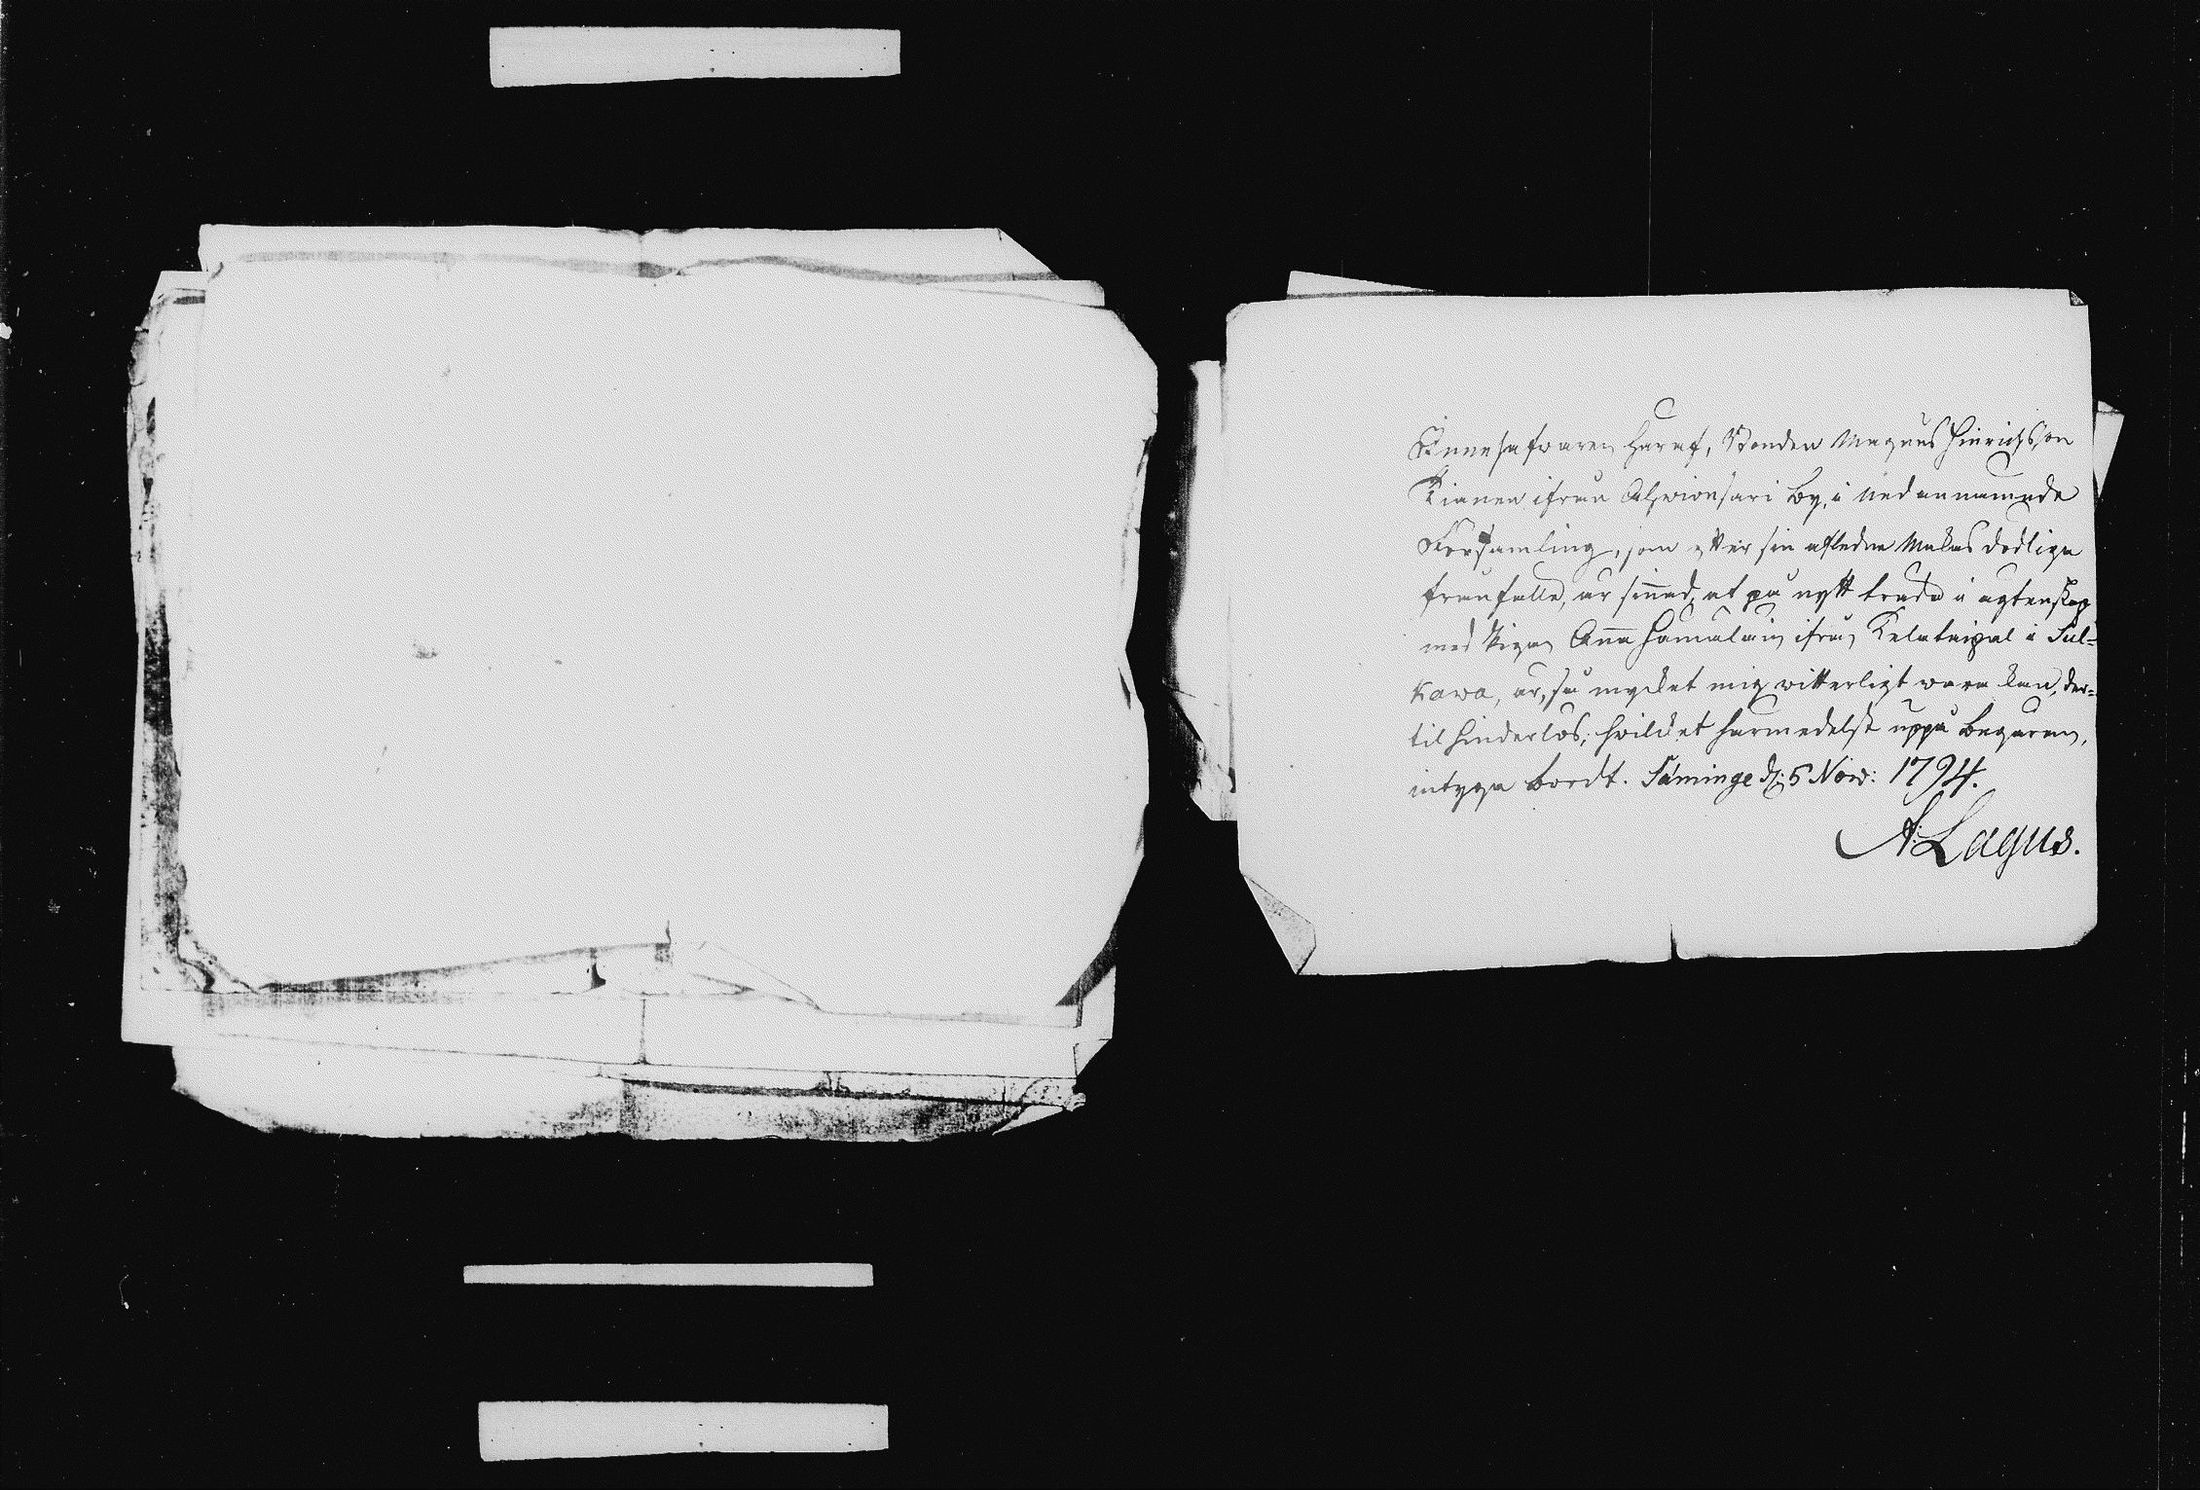 Innehafwaren häraf, Bonden Magnus Hinrichsson
Kianen ifrån Ahwionsari by, i nedannämnde
Församling, som efter sin aflednе Makas dödliga
frånfälle, är sinnad, at på nytt träda i ägtenskap
med Pigan Anna Hämäläin ifrån Kelataipal i Sul=
kawa, är, så mycket mig witterligt wara kan, der=
til hinderlös; hwilket härmedelst uppå begäran,
intyga bordt. Säminge d: 5 Now: 1794.
A: Lagus.